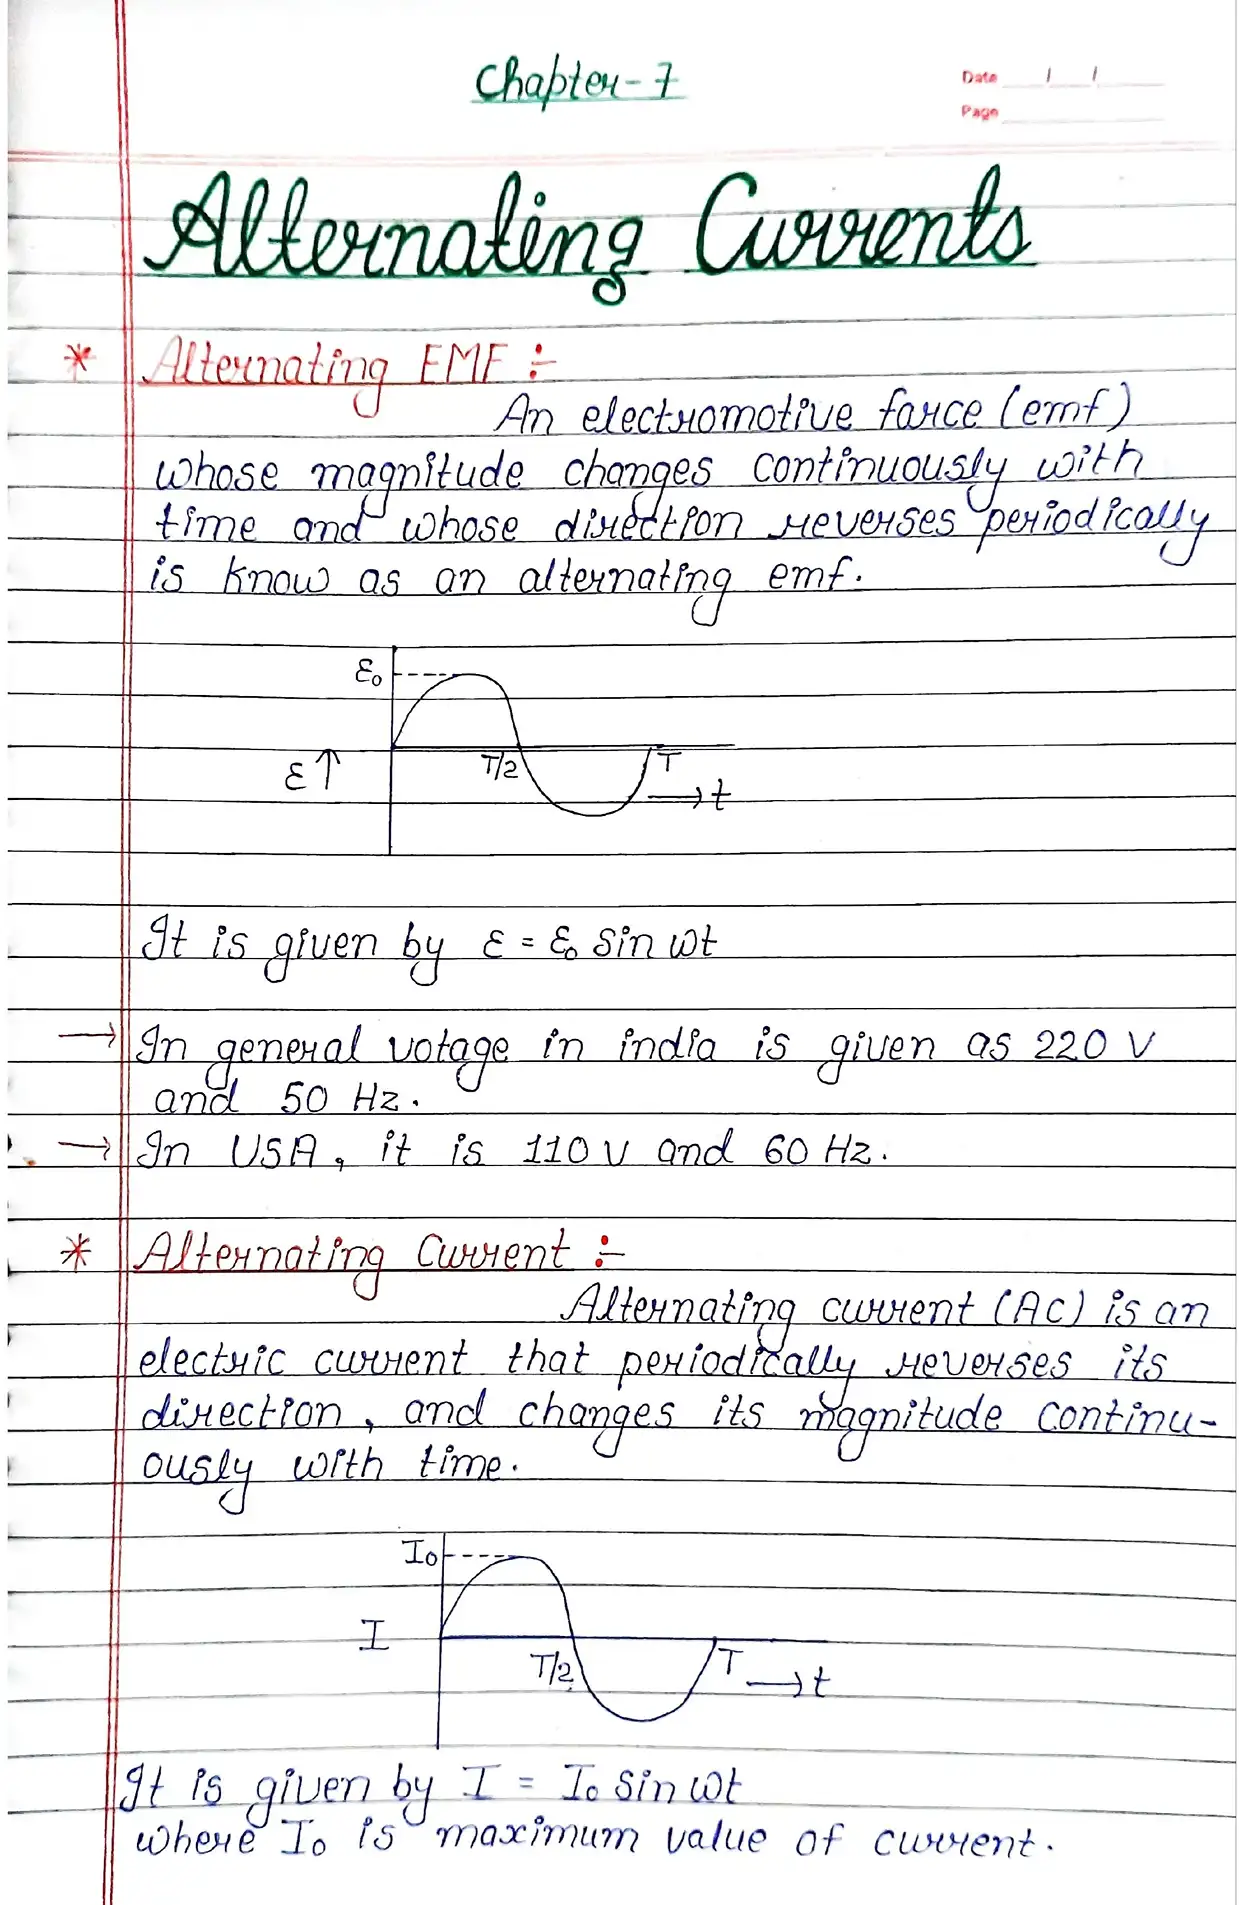 Chapter-7
Date / /
Page
Alternating Currents
* Alternating EMF :-
An electromotive force (emf)
whose magnitude changes continuously with
time and whose direction reverses periodically
is know as an alternating emf.
ε₀
ε↑ T/2 T
→ t
It is given by ε = ε₀ sin ωt
→ In general votage in india is given as 220 V
and 50 Hz.
→ In USA, it is 110 V and 60 Hz.
* Alternating Current :-
Alternating current (AC) is an
electric current that periodically reverses its
direction, and changes its magnitude continu-
ously with time.
I₀
I
T/2 T → t
It is given by I = I₀ sin ωt
where I₀ is maximum value of current.